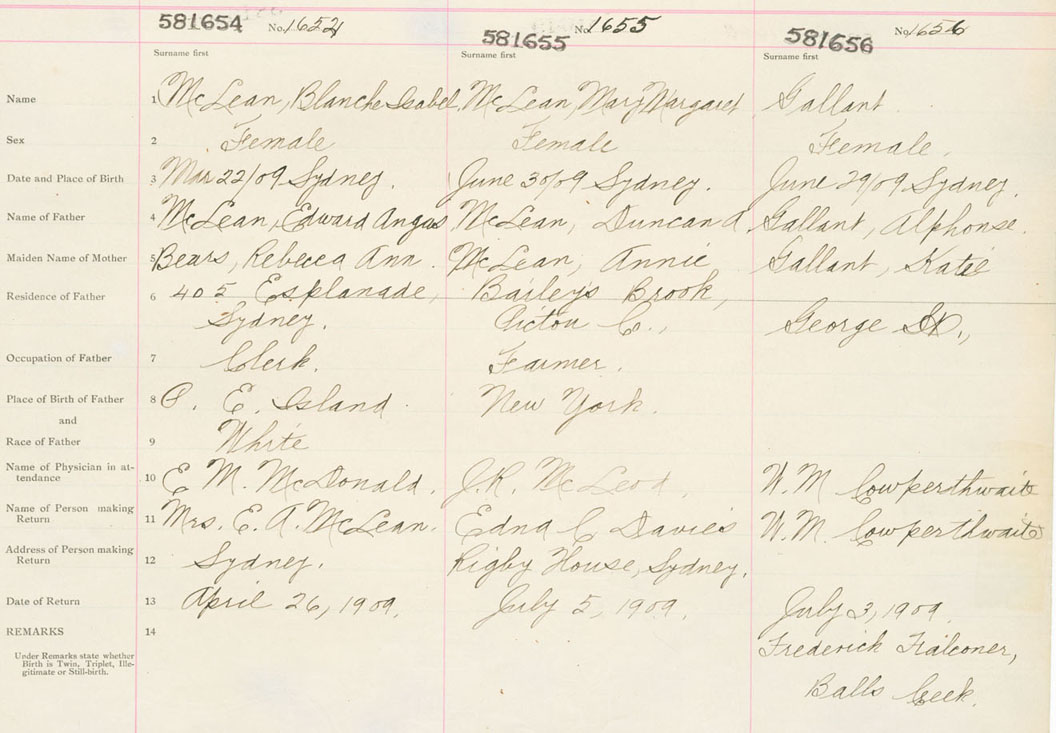 581654 No. 1654 581655 No. 1655 581656 No. 1656
Surname first Surname first Surname first
Name 1 McLean, Blanche Isabel. McLean, Mary Margaret Gallant
Sex 2 Female Female Female.
Date and Place of Birth 3 Mar 22/09 Sydney. June 30/09 Sydney. June 29/09 Sydney.
Name of Father 4 McLean, Edward Angus McLean, Duncan A Gallant, Alphonse.
Maiden Name of Mother 5 Bears, Rebecca Ann. McLean, Annie Gallant, Katie
Residence of Father 6 405 Esplanade, Bailey's Brook,
Sydney. Pictou C., George St.,
Occupation of Father 7 Clerk. Farmer.
Place of Birth of Father 8 P. E. Island. New York.
and
Race of Father 9 White
Name of Physician in at-
tendance 10 E M. McDonald. J.R. McLeod. W. M Cowperthwaite
Name of Person making
Return 11 Mrs. E. A. McLean. Edna C Davies W. M Cowperthwaite
Address of Person making
Return 12 Sydney. Rigby House, Sydney.
Date of Return 13 April 26, 1909. July 5, 1909. July 3, 1909.
REMARKS 14
Frederick Falconer,
Under Remarks state whether
Birth is Twin, Triplet, Ille-
gitimate or Still-birth.
Balls Creek.